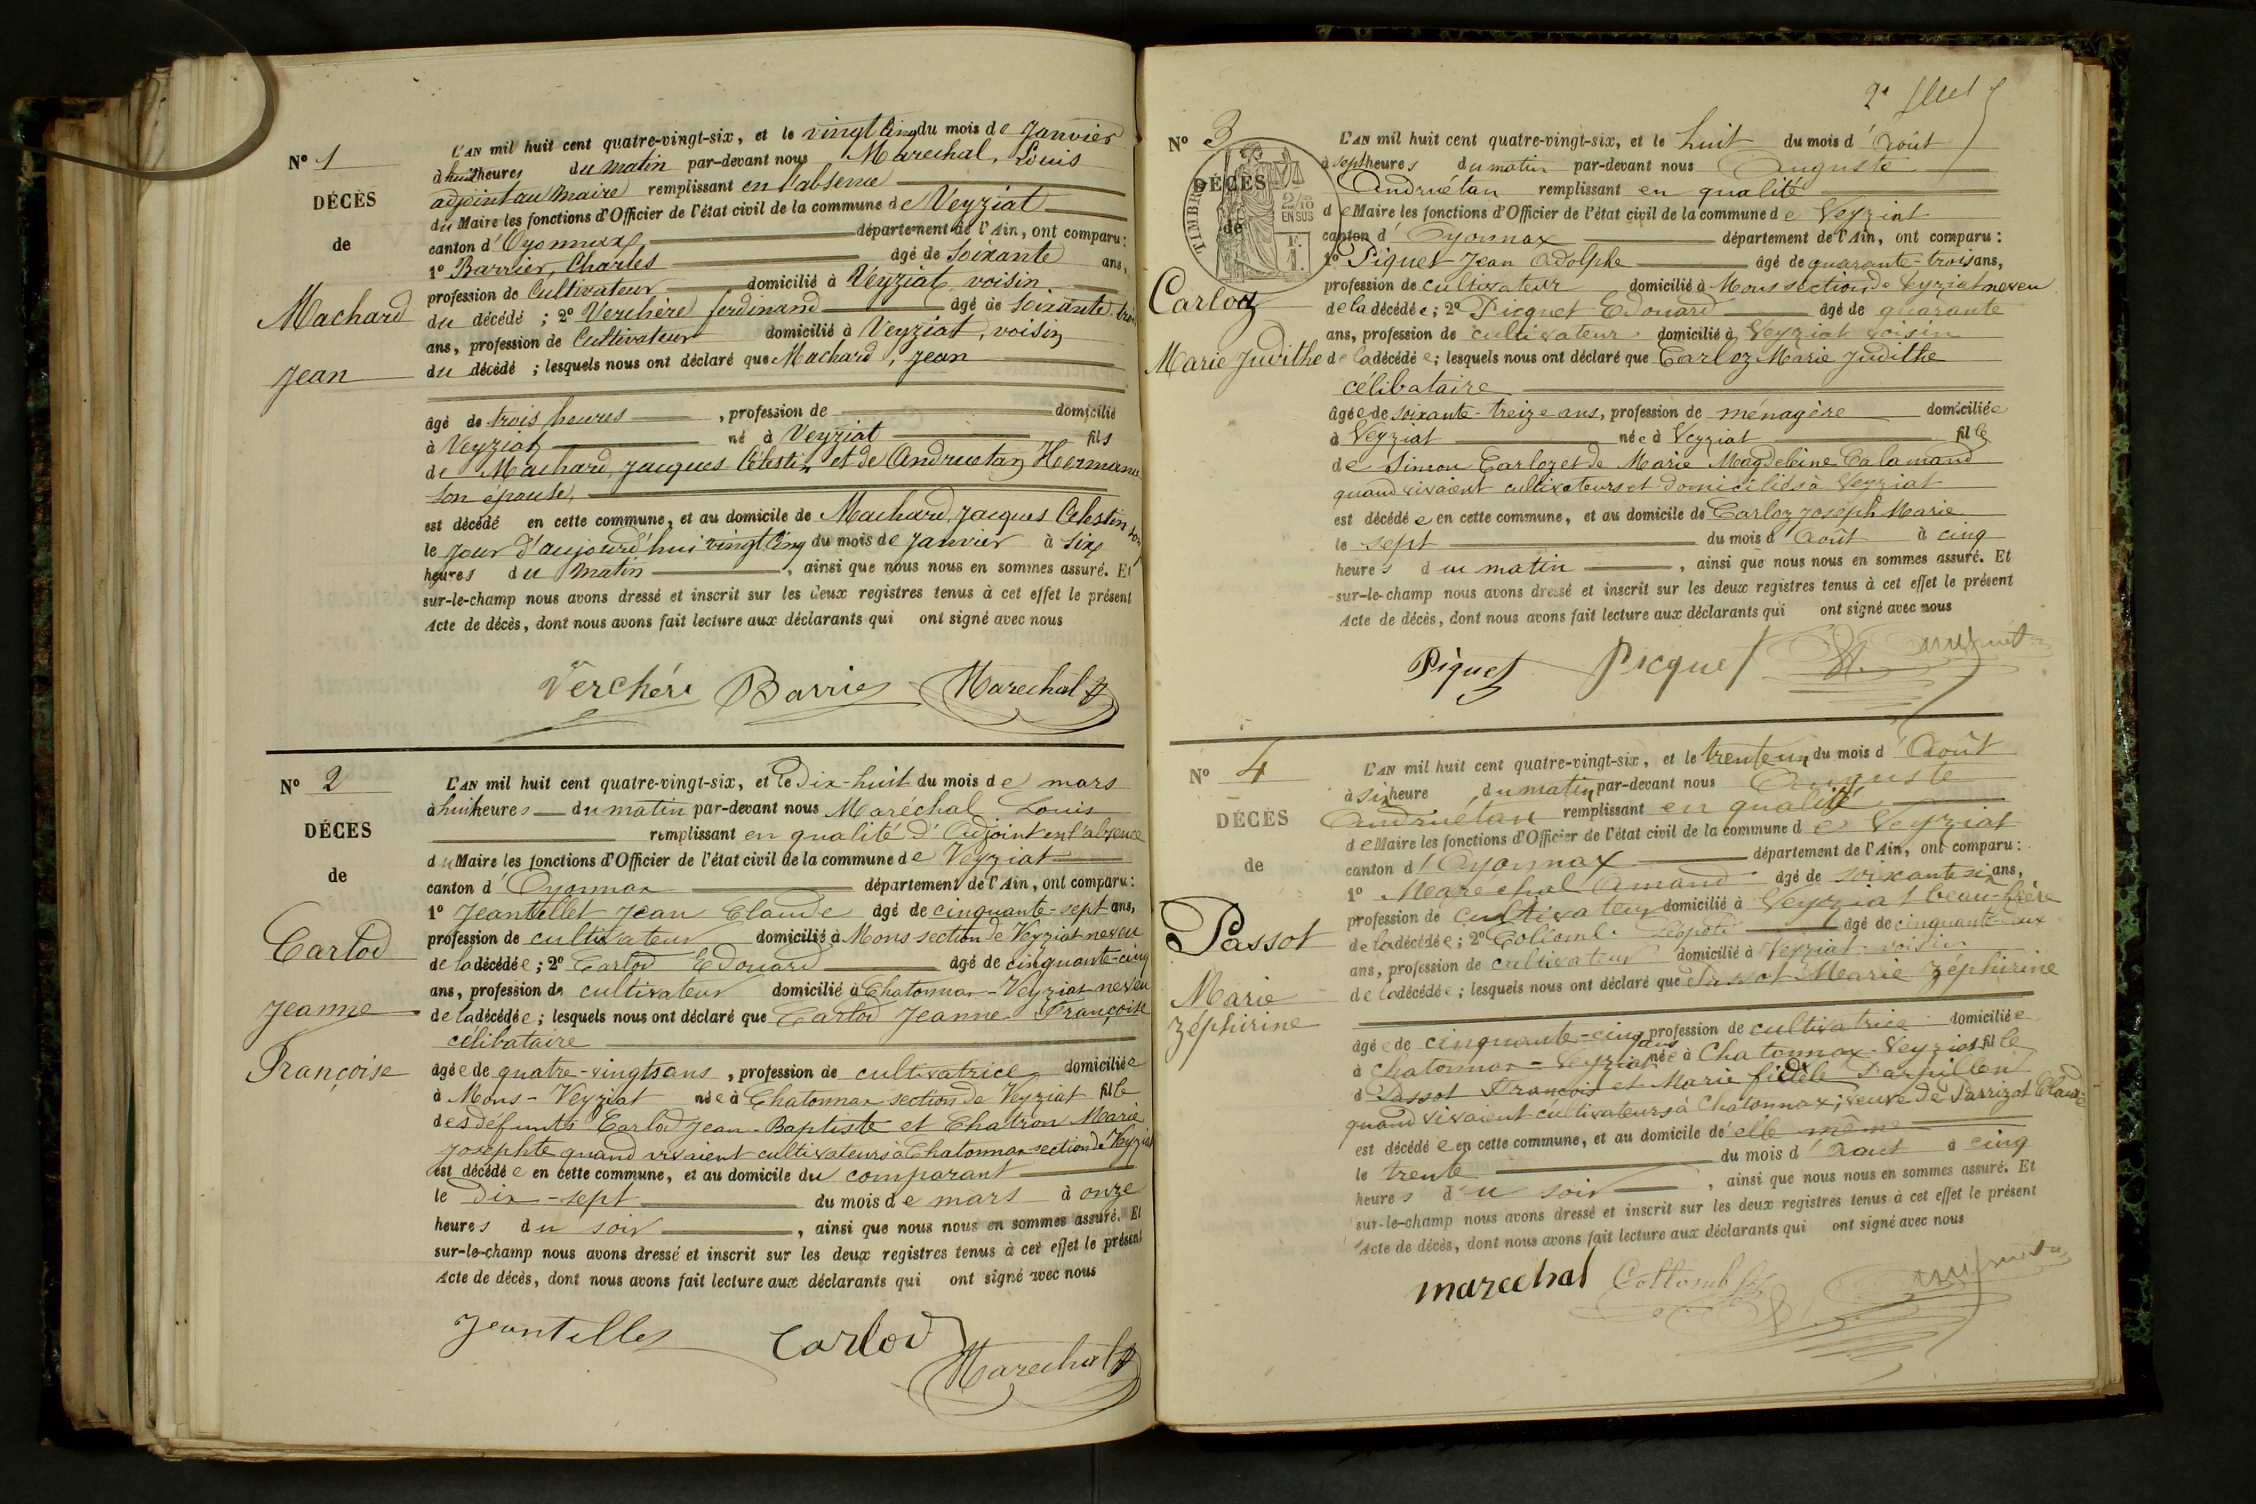 N° 1
DÉCÈS
de
Machard
Jean
L'AN mil huit cent quatre-vingt-six, et le vingt cinq du mois de Janvier
à huit heures du matin par-devant nous Marechal, Louis
adjoint au maire remplissant en l'absence
du Maire les fonctions d'Officier de l'état civil de la commune de Veyziat
canton d'Oyonnax, département de l'Ain, ont comparu :
1° Barrier, Charles âgé de Soixante ans,
profession de Cultivateur domicilié à Veyziat, voisin
du décédé ; 2° Verchère ferdinand âgé de soixante trois
ans, profession de Cultivateur domicilié à Veyziat, voisin
du décédé ; lesquels nous ont déclaré que Machard, Jean
âgé de trois heures , profession de domicilié
à Veyziat né à Veyziat fils
de Machard, Jacques Célestin et de Andruetan Hermanse
son épouse,
est décédé en cette commune, et au domicile de Machard, Jacques Celestin son
le jour d'aujourd'hui vingt cinq du mois de Janvier à six
heures du matin , ainsi que nous nous en sommes assuré. Et
sur-le-champ nous avons dressé et inscrit sur les deux registres tenus à cet effet le présent
Acte de décès, dont nous avons fait lecture aux déclarants qui ont signé avec nous
Verchére Barrier Marechal
N° 2
DÉCES
de
Carlod
Jeanne
Françoise
L'AN mil huit cent quatre-vingt-six, et le Dix-huit du mois de mars
à huit heures du matin par-devant nous Maréchal Louis
remplissant en qualité d'Adjoint en l'absence
du Maire les fonctions d'Officier de l'état civil de la commune de Veyziat
canton d'Oyonnax département de l'Ain, ont comparu :
1° Jeantellet Jean Claude âgé de cinquante-sept ans,
profession de cultivateur domicilié à Mons section de Veyziat neveu
de la décédée ; 2° Carlod Edouard âgé de cinquante-cinq
ans, profession de cultivateur domicilié à Chatonnax-Veyziat neveu
de la décédée ; lesquels nous ont déclaré que Carlod Jeanne-Françoise
célibataire
âgée de quatre-vingts ans , profession de cultivatrice domiciliée
à Mons-Veyziat née à Chatonnax section de Veyziat fille
des défunts Carlod Jean-Baptiste et Chatron Marie
Josephte quand vivaient cultivateurs à Chatonnax section de Veyziat
est décédée en cette commune, et au domicile du comparant
le Dix-sept du mois de mars à onze
heures du soir , ainsi que nous nous en sommes assuré. Et
sur-le-champ nous avons dressé et inscrit sur les deux registres tenus à cet effet le présent
Acte de décès, dont nous avons fait lecture aux déclarants qui ont signé avec nous
Jeantellet Carlod Marechal
2e
N° 3
DÉCÈS
de
TIMBRE
2/10
EN SUS
Carloz
Marie Judithe
L'AN mil huit cent quatre-vingt-six, et le huit du mois d'Août
à sept heures du matin par-devant nous Auguste
Andruétan remplissant en qualité
de Maire les fonctions d'Officier de l'état civil de la commune de Veyziat
canton d'Oyonnax département de l'Ain, ont comparu :
1° Piquet Jean Adolphe âgé de quarante-trois ans,
profession de cultivateur domicilié à Mons section de Veyziat neveu
de la décédée ; 2° Picquet Edouard âgé de quarante
ans, profession de cultivateur domicilié à Veyziat voisin
de la décédée ; lesquels nous ont déclaré que Carloz Marie Judithe
célibataire
âgée de soixante-treize ans, profession de ménagère domiciliée
à Veyziat née à Veyziat fille
de Simon Carloz et de Marie Magdeleine Calamand
quand vivaient cultivateurs et domiciliés à Veyziat
est décédée en cette commune, et au domicile de Carloz Joseph Marie
le sept du mois d'Août à cinq
heures du matin , ainsi que nous nous en sommes assuré. Et
sur-le-champ nous avons dressé et inscrit sur les deux registres tenus à cet effet le présent
Acte de décès, dont nous avons fait lecture aux déclarants qui ont signé avec nous
Piquet Picquet
N° 4
DÉCÈS
de
Passot
Marie
Zéphirine
L'AN mil huit cent quatre-vingt-six, et le trente un du mois d'Août
à six heure du matin par-devant nous Auguste
Andruétan remplissant en qualité
de Maire les fonctions d'Officier de l'état civil de la commune de Veyziat
canton d'Oyonnax département de l'Ain, ont comparu :
1° Maréchal Amand âgé de soixante six ans,
profession de cultivateur domicilié à Veyziat beau-frère
de la décédée ; 2° Collomb âgé de cinquante-deux
ans, profession de cultivateur domicilié à Veyziat voisin
de la décédée ; lesquels nous ont déclaré que Passot Marie Zéphirine
âgée de cinquante-cinq ans profession de cultivatrice domiciliée
à Chatonnax-Veyziat née à Chatonnax-Veyziat fille
d Passot François et Marie fidèle
quand vivaient cultivateurs à Chatonnax ; veuve de Parrizot Claude
est décédée en cette commune, et au domicile de elle même
le trente du mois d'Août à cinq
heures du soir , ainsi que nous nous en sommes assuré. Et
sur-le-champ nous avons dressé et inscrit sur les deux registres tenus à cet effet le présent
Acte de décès, dont nous avons fait lecture aux déclarants qui ont signé avec nous
marechal Collomb